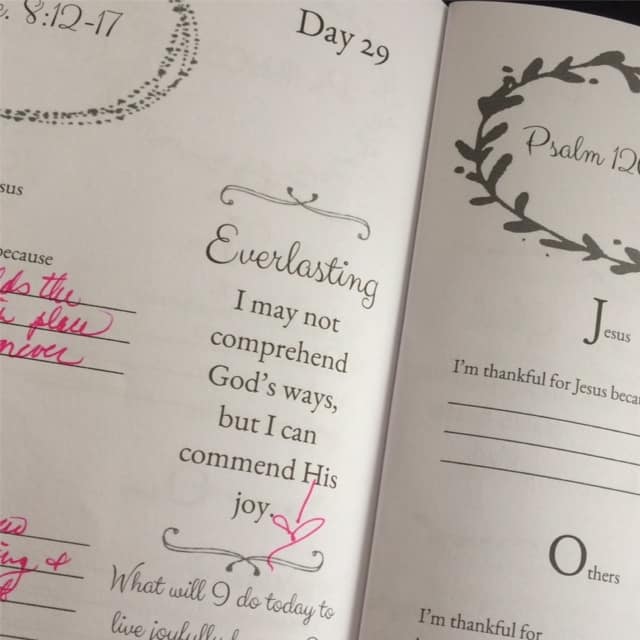 8:12-17
Day 29
because
the
place
Everlasting
I may not
comprehend
God's ways,
but I can
commend His
joy.
What will I do today to
live joyfully
Psalm
Jesus
I'm thankful for Jesus
Others
I'm thankful for